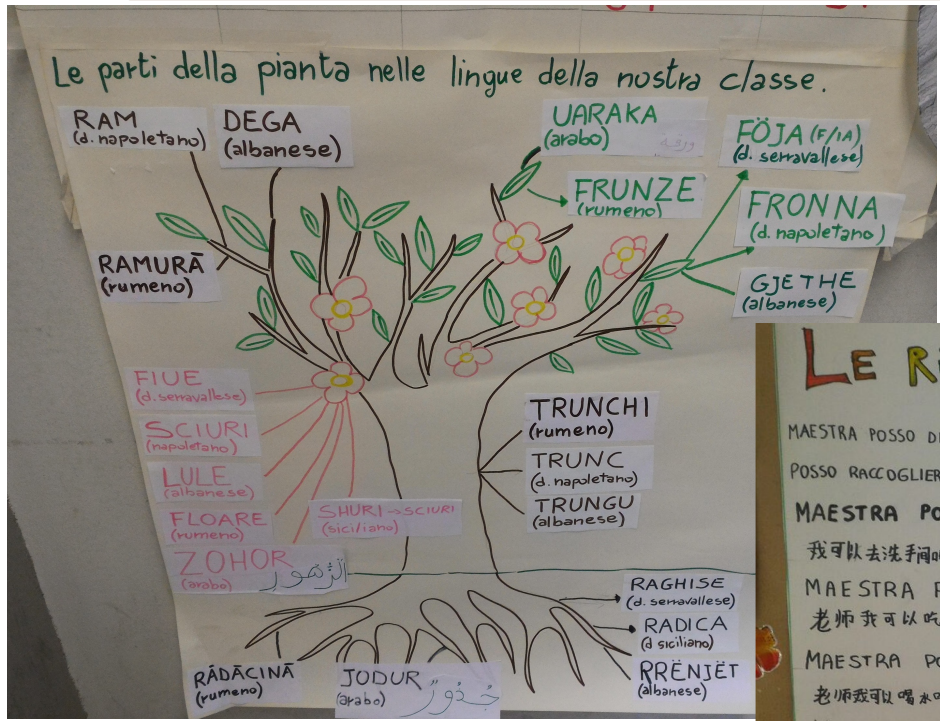 Le parti della pianta nelle lingue della nostra classe.
RAM
(d. napoletano)
DEGA
(albanese)
UARAKA
(arabo)
ورقة
FÖJA (F/IA)
(d. serravallese)
FRUNZE
(rumeno)
FRONNA
(d. napoletano)
RAMURĀ
(rumeno)
GJETHE
(albanese)
FIUE
(d. serravallese)
SCIURI
(napoletano)
LULE
(albanese)
FLOARE
(rumeno)
SHURI → SCIURI
(siciliano)
ZOHOR
(arabo)
الزهور
TRUNCHI
(rumeno)
TRUNC
(d. napoletano)
TRUNGU
(albanese)
RAGHISE
(d. serravallese)
RADICA
(d siciliano)
RRËNJËT
(albanese)
RĀDĀCINĀ
(rumeno)
JODUR
(arabo)
جذور
LE
MAESTRA POSSO
POSSO
MAESTRA
我可以去洗手间
MAESTRA
老师我可以吃
MAESTRA
老师我可以喝水